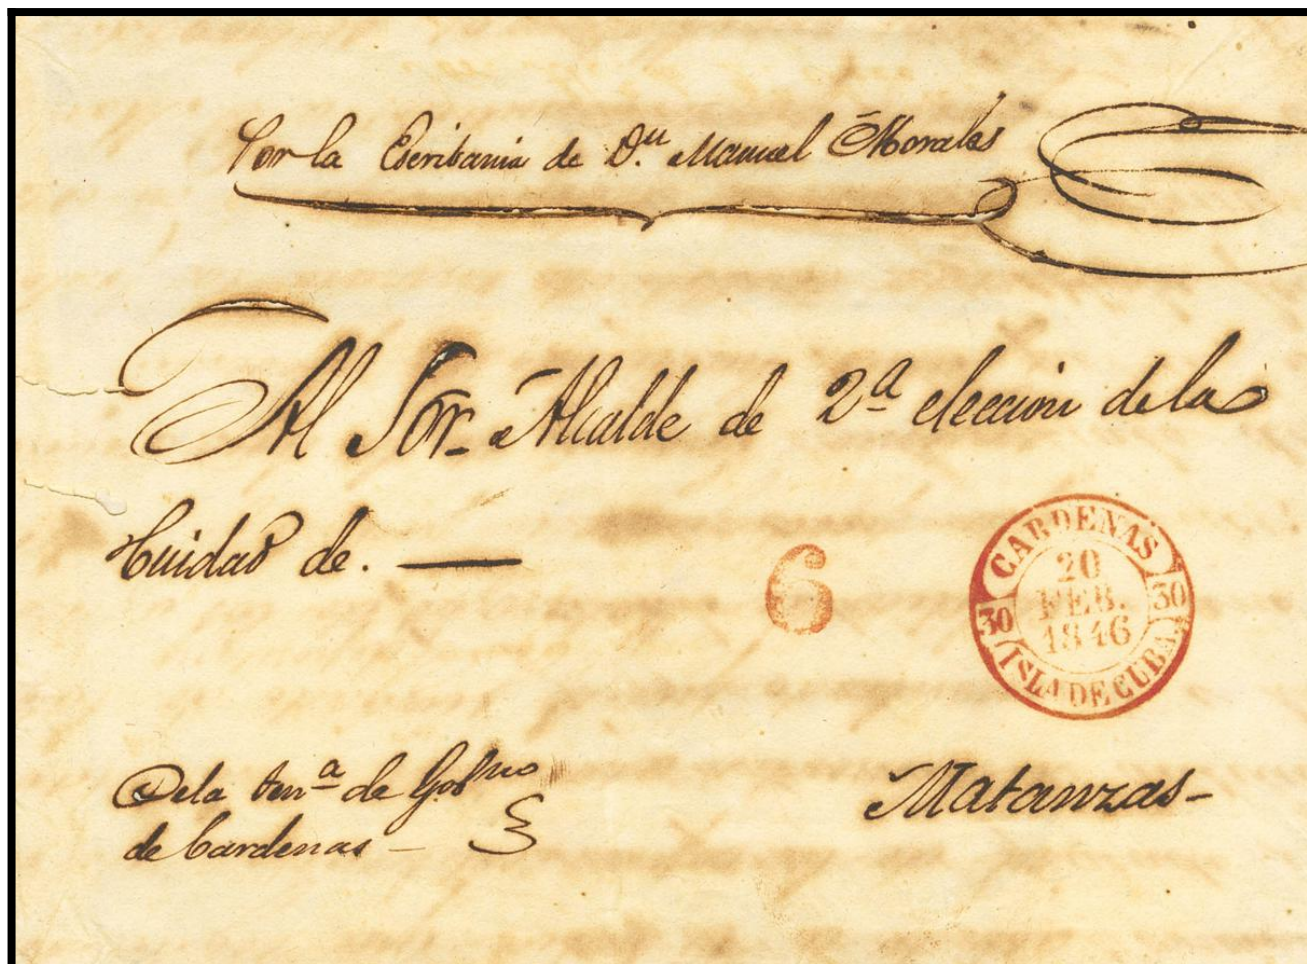 Por la Escribania de Dn. Manuel Morales
Al Sor. Alcalde de 2a eleccion de la
Cuidad de. —
6
CARDENAS
20
FEB.
1846
30 30
ISLA DE CUBA
De la tena de Gobno
de Cardenas —
Matanzas-